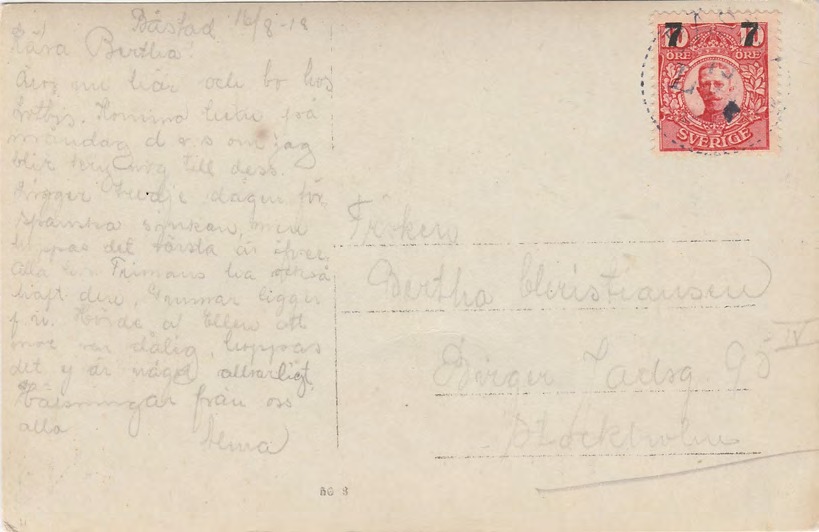 Båstad 16/8-18
Kära Bertha!
Är nu här och bo hos
Komma hem på
måndag d.v.s om jag
blir till dess.
Ligger tredje dagen för
spanska sjukan, men
hoppas det värsta är öfver.
Alla Frimans ha också
haft den, Gunnar ligger
f.n. Hörde af Ellen att
mor var dålig, hoppas
det ej är något allvarligt.
Hälsningar från oss
alla
7 7
ÖRE ÖRE
SVERIGE
Fröken
Bertha Christiansen
Birger Jarlsg. 95 IV
Stockholm